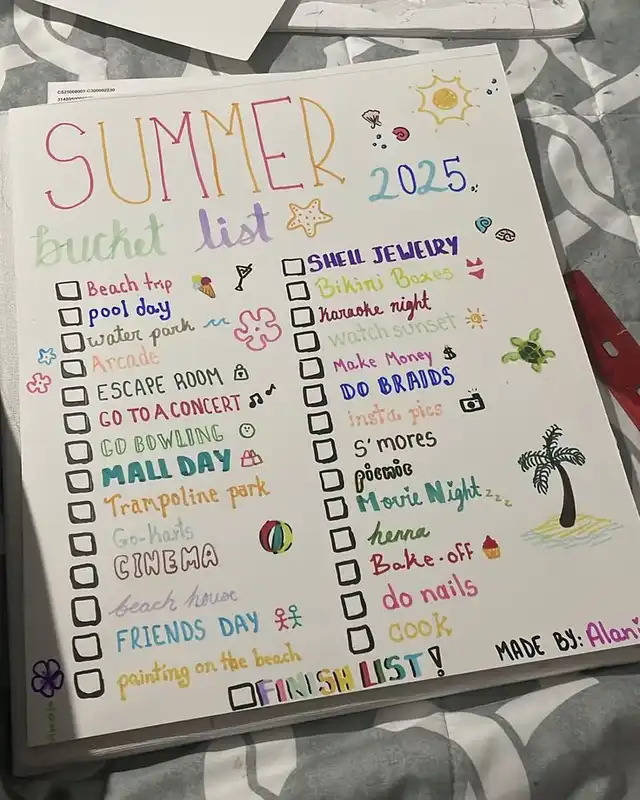 SUMMER
2025
bucket list
Beach trip
pool day
water park
Arcade
ESCAPE ROOM
GO TO A CONCERT
GO BOWLING
MALL DAY
Trampoline park
Go-karts
CINEMA
beach house
FRIENDS DAY
painting on the beach
SHELL JEWELRY
Bikini Boxes
Karaoke night
watch sunset
Make Money $
DO BRAIDS
insta pics
S'mores
picnic
Movie Night zzz
henna
Bake-off
do nails
cook
FINISH LIST!
MADE BY: Alani